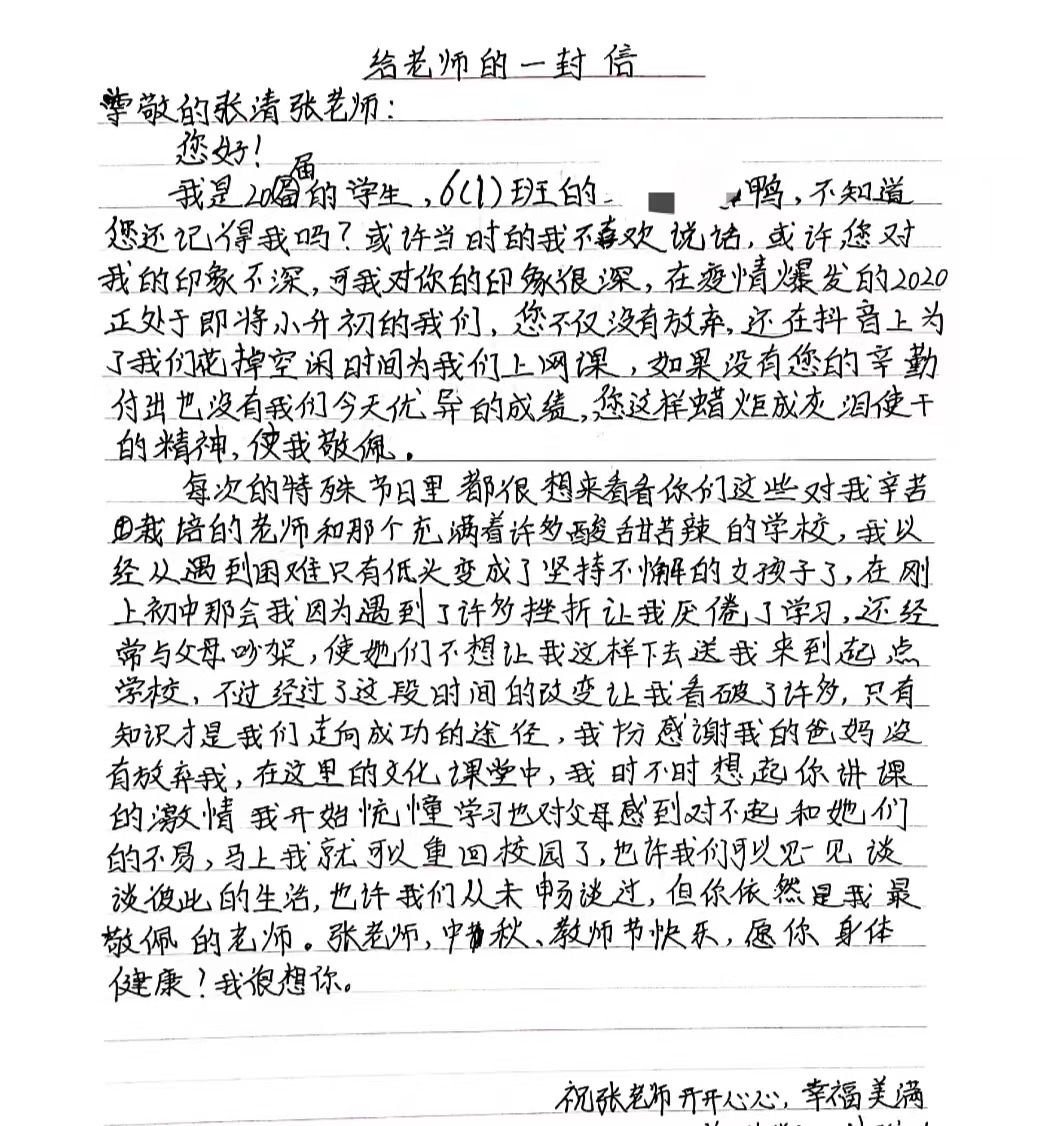 给老师的一封信
尊敬的张清张老师:
您好!
我是20届的学生,6(1)班的 鸭,不知道
您还记得我吗?或许当时的我不喜欢说话,或许您对
我的印象不深,可我对你的印象很深,在疫情爆发的2020
正处于即将小升初的我们,您不仅没有放弃,还在抖音上为
了我们花掉空闲时间为我们上网课,如果没有您的辛勤
付出也没有我们今天优异的成绩,您这样蜡炬成灰泪使干
的精神,使我敬佩。
每次的特殊节日里都很想来看看你们这些对我辛苦
栽培的老师和那个充满着许多酸甜苦辣的学校,我以
经从遇到困难只有低头变成了坚持不懈的女孩子了,在刚
上初中那会我因为遇到了许多挫折让我厌倦了学习,还经
常与父母吵架,使她们不想让我这样下去送我来到起点
学校,不过经过了这段时间的改变让我看破了许多,只有
知识才是我们走向成功的途径,我扮感谢我的爸妈没
有放弃我,在这里的文化课堂中,我时不时想起你讲课
的激情我开始忱憧学习也对父母感到对不起和她们
的不易,马上我就可以重回校园了,也许我们可以见一见谈
谈彼此的生活,也许我们从未畅谈过,但你依然是我最
敬佩的老师。张老师,中秋、教师节快乐,愿你身体
健康!我很想你。
祝张老师开开心心,幸福美满